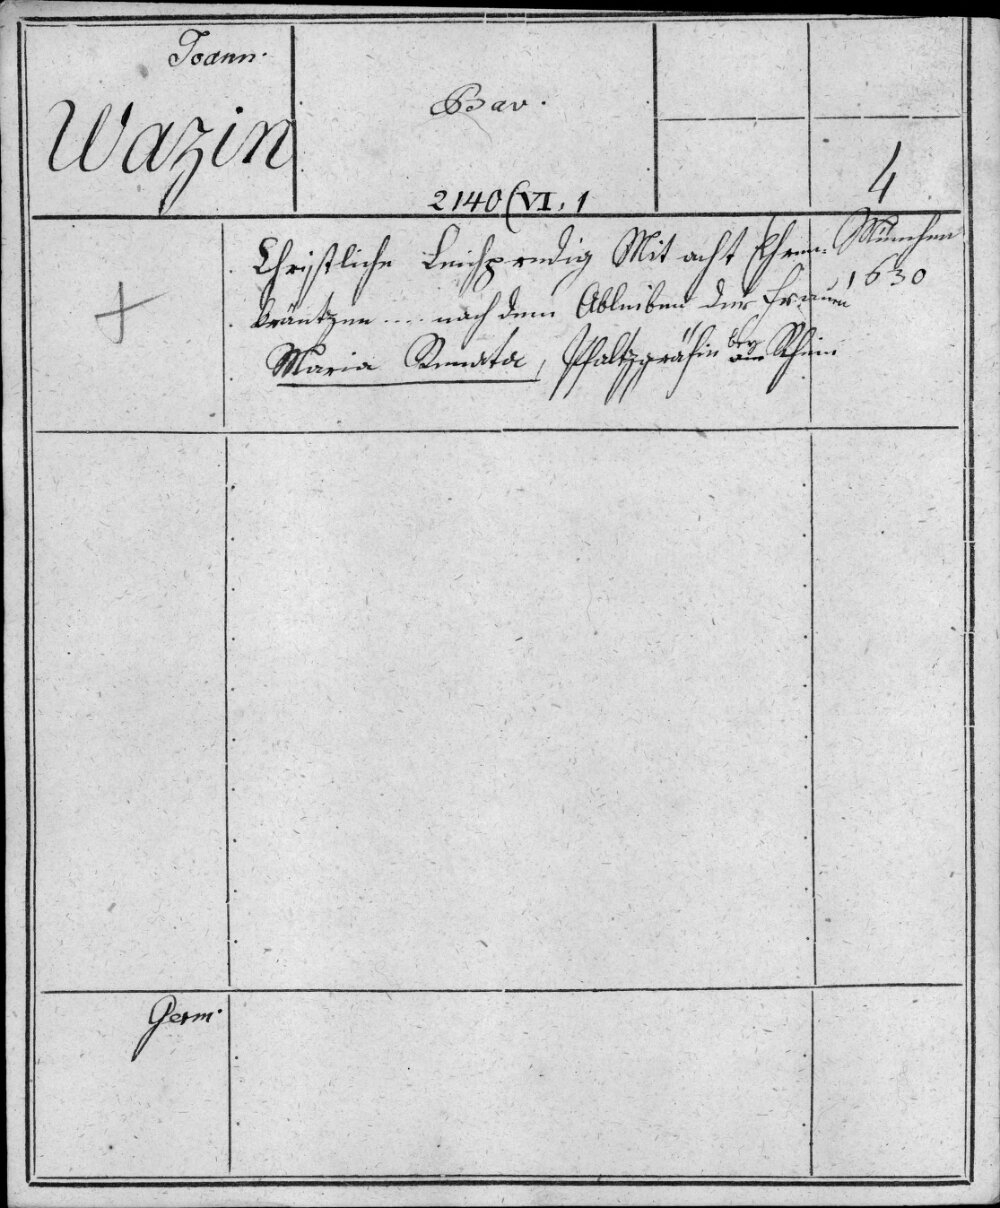 Joann.
Wazin
Bav.
2140 (VI, 1
4
Christliche Leichpredig Mit acht Ehren-
kräntzen .... nach dem Ableiben der Frauen
Maria Renata, Pfaltzgräfin bey Rhein
München
1630
Germ.